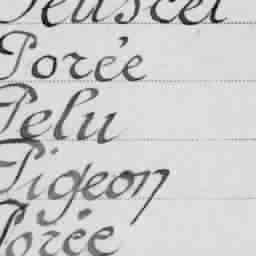 Porée
Pelu
Pigeon
Porée